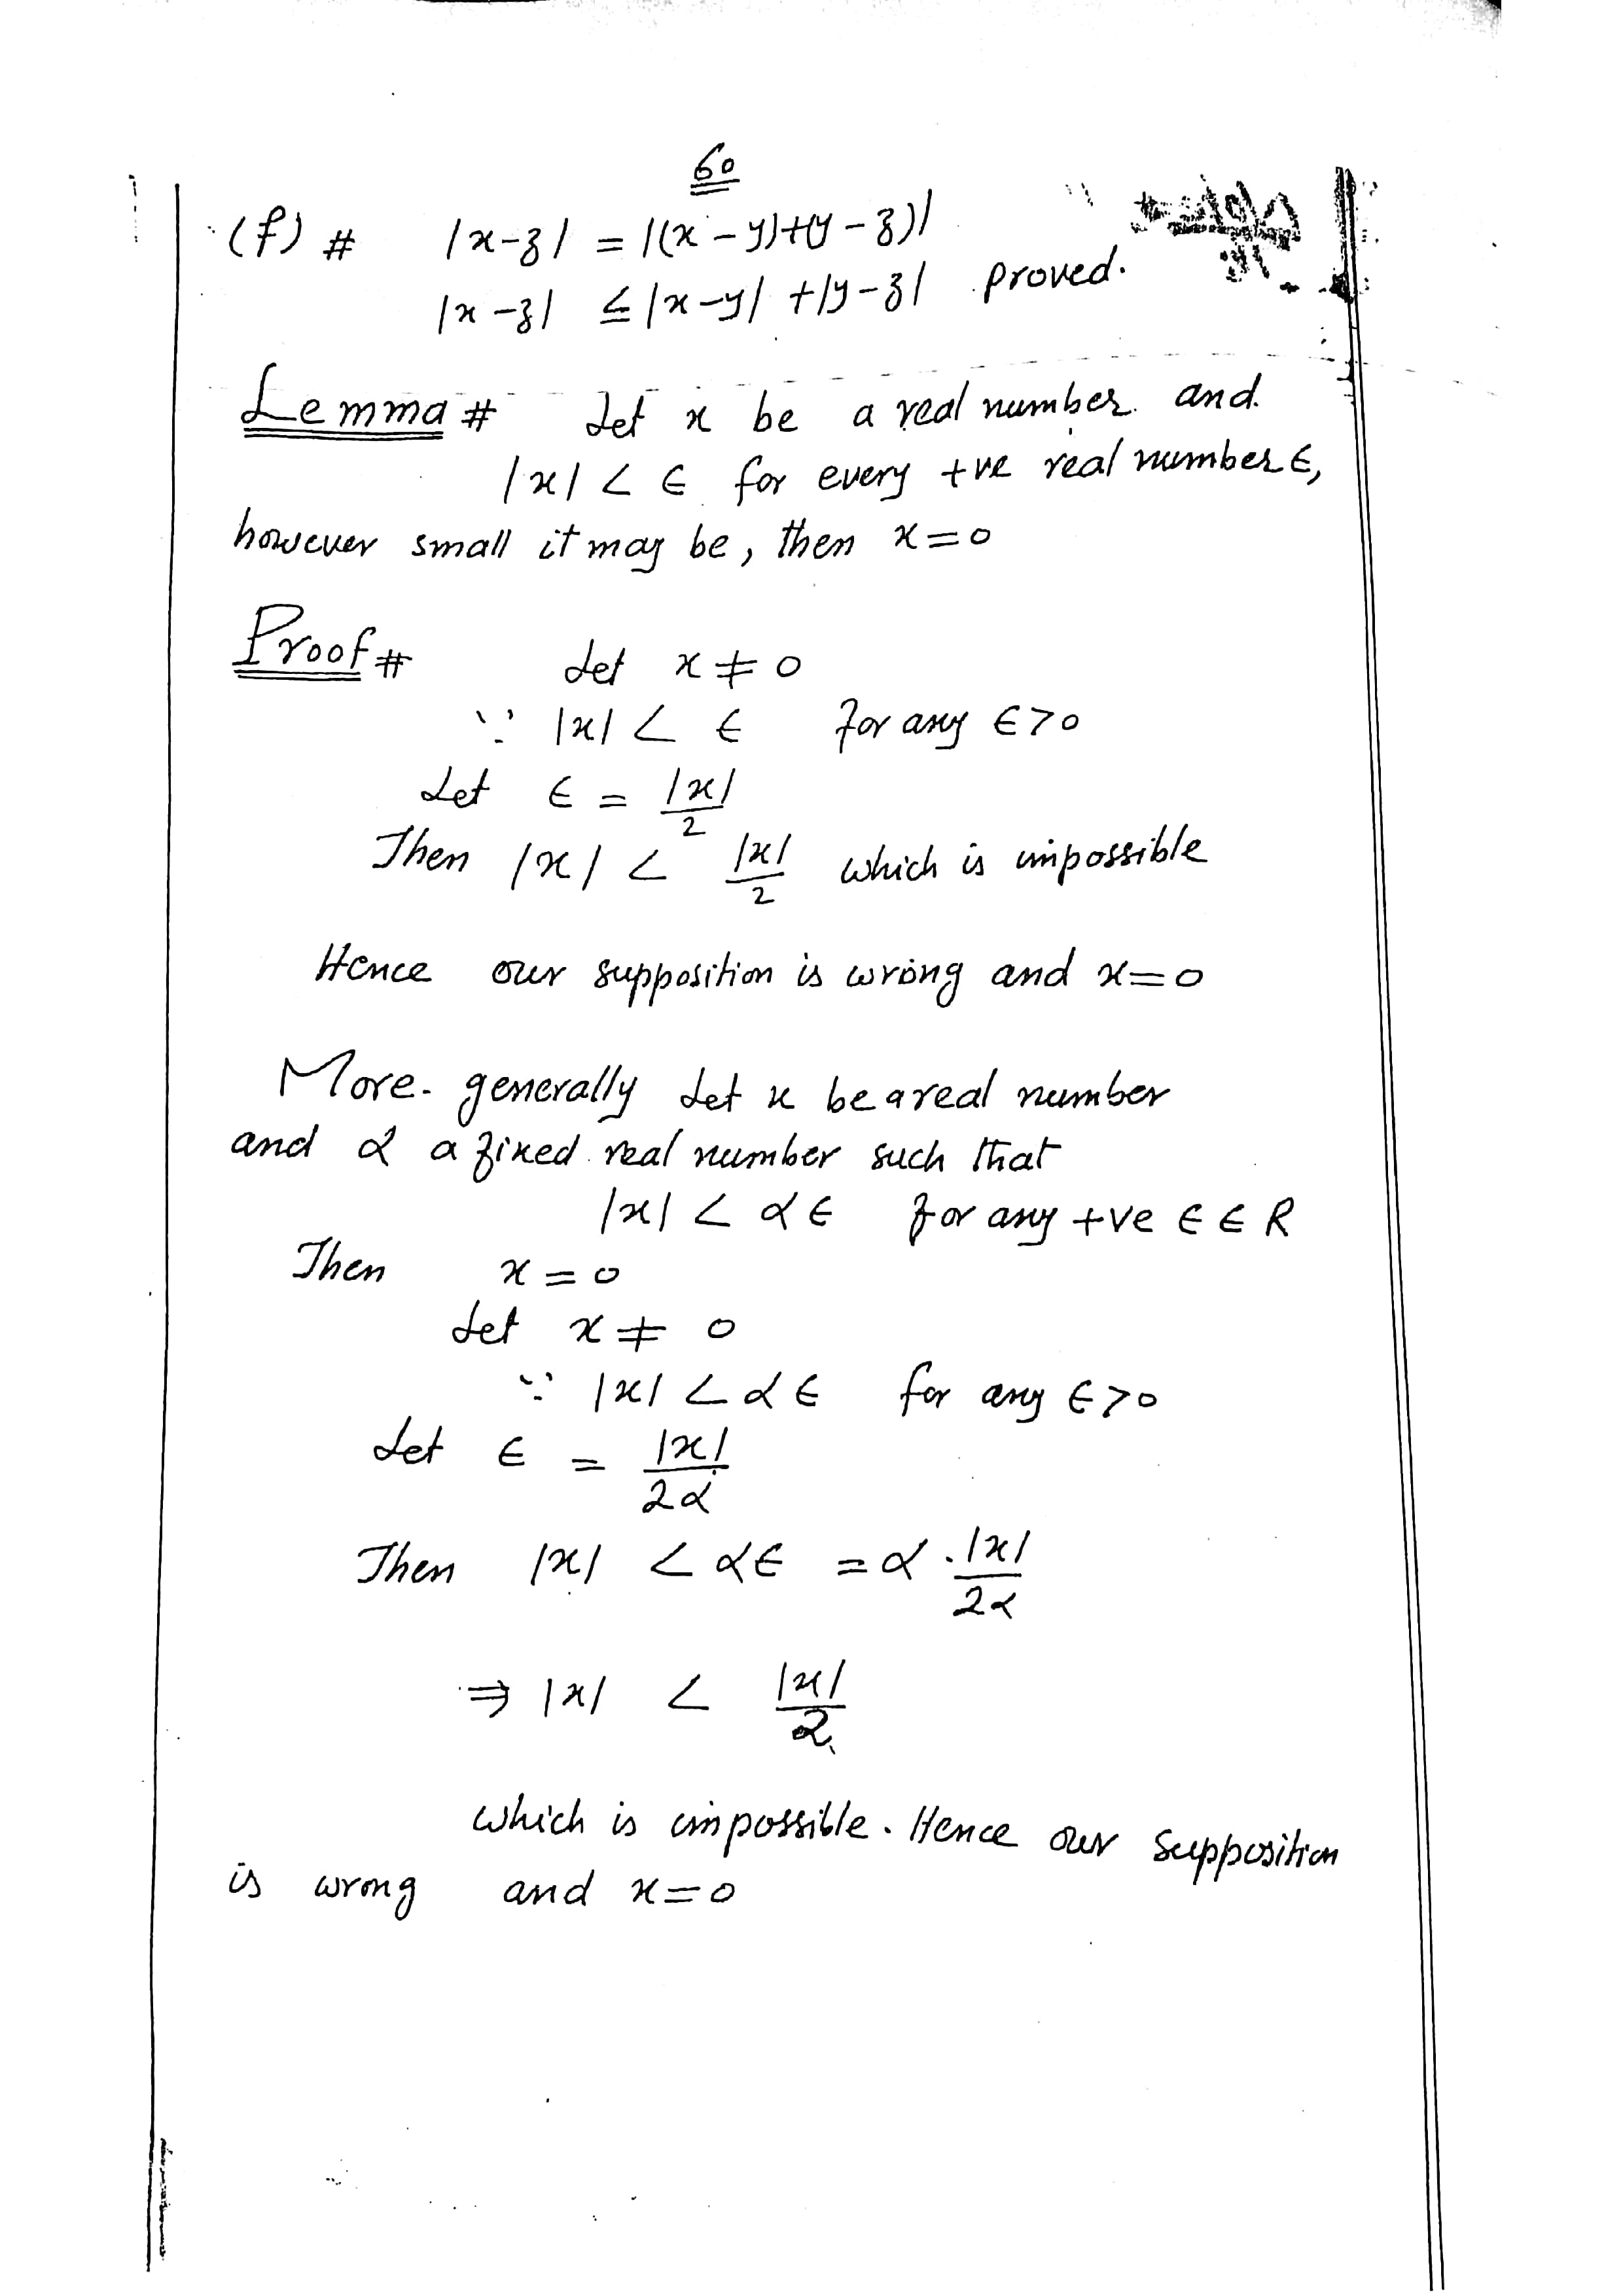 60
(f) # |x-z| = |(x-y)+(y-z)|
|x-z| ≤ |x-y| + |y-z| proved.
Lemma # Let x be a real number and
|x| < ϵ for every +ve real number ϵ,
however small it may be, then x=0
Proof # Let x ≠ 0
∵ |x| < ϵ for any ϵ>0
Let ϵ = |x|/2
Then |x| < |x|/2 which is impossible
Hence our supposition is wrong and x=0
More-generally Let x be a real number
and α a fixed real number such that
|x| < αϵ for any +ve ϵ ∈ R
Then x=0
Let x ≠ 0
∵ |x| < αϵ for any ϵ>0
Let ϵ = |x|/2α
Then |x| < αϵ = α.|x|/2α
⇒ |x| < |x|/2
which is impossible. Hence our supposition
is wrong and x=0